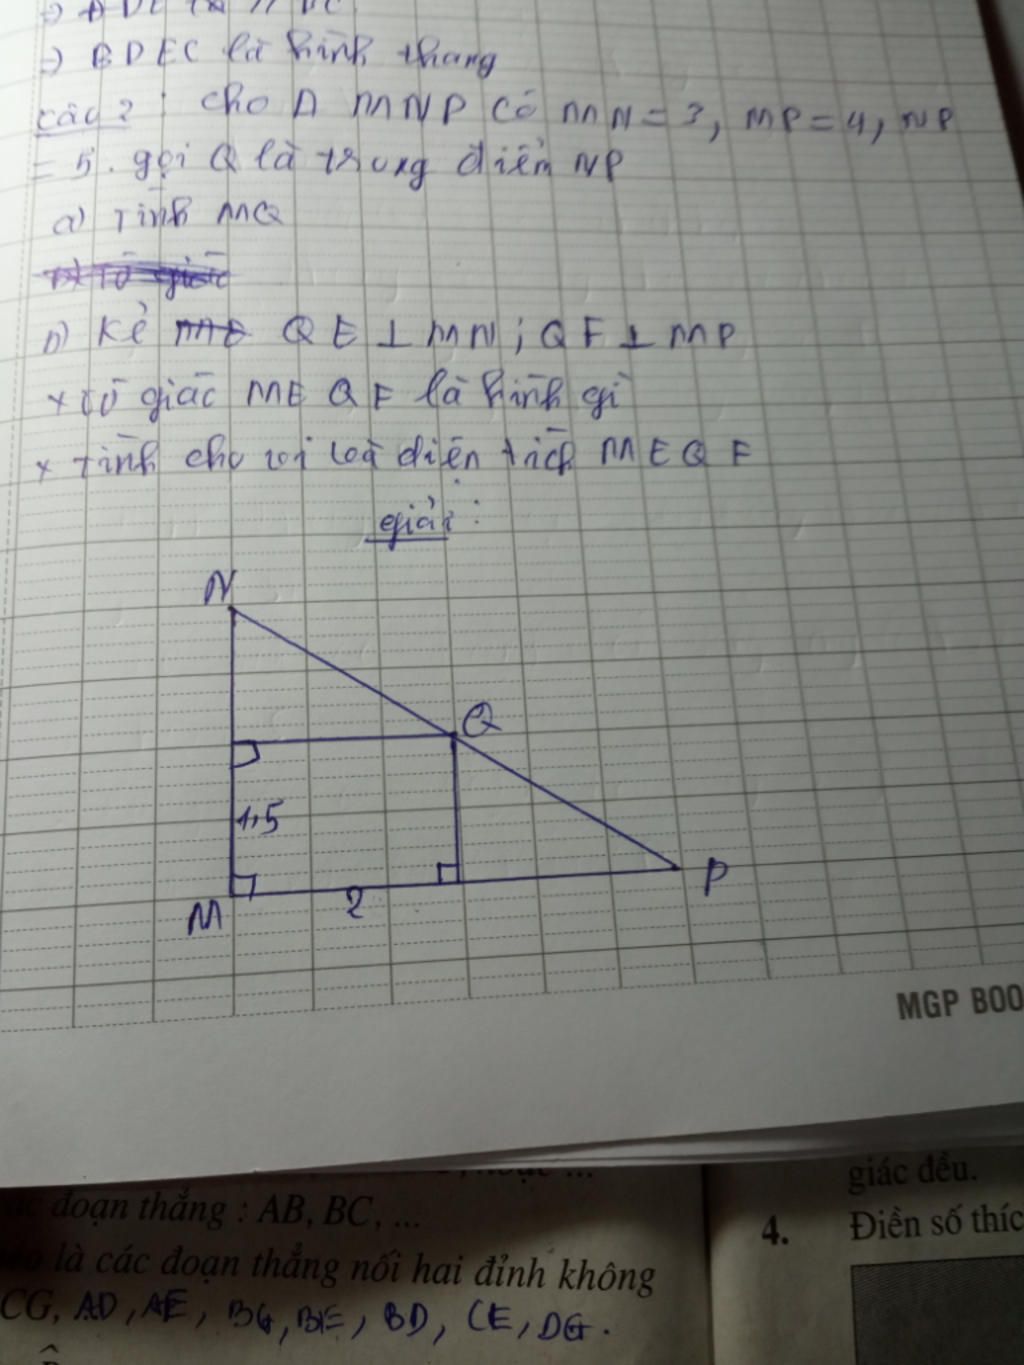 => BDEC là hình thang
Câu 2: cho Δ MNP có MN = 3, MP = 4, NP
= 5. gọi Q là trung điểm NP
a) Tính MQ
b) Kẻ QE ⊥ MN; QF ⊥ MP
+ tứ giác MEQF là hình gì
+ Tính chu vi và diện tích MEQF
giải:
N
Q
1,5
M
2
P
MGP BOO
đoạn thẳng : AB, BC, ...
là các đoạn thẳng nối hai đỉnh không
CG, AD, AE, BG, BE, BD, CE, DG.
giác đều.
4. Điền số thíc